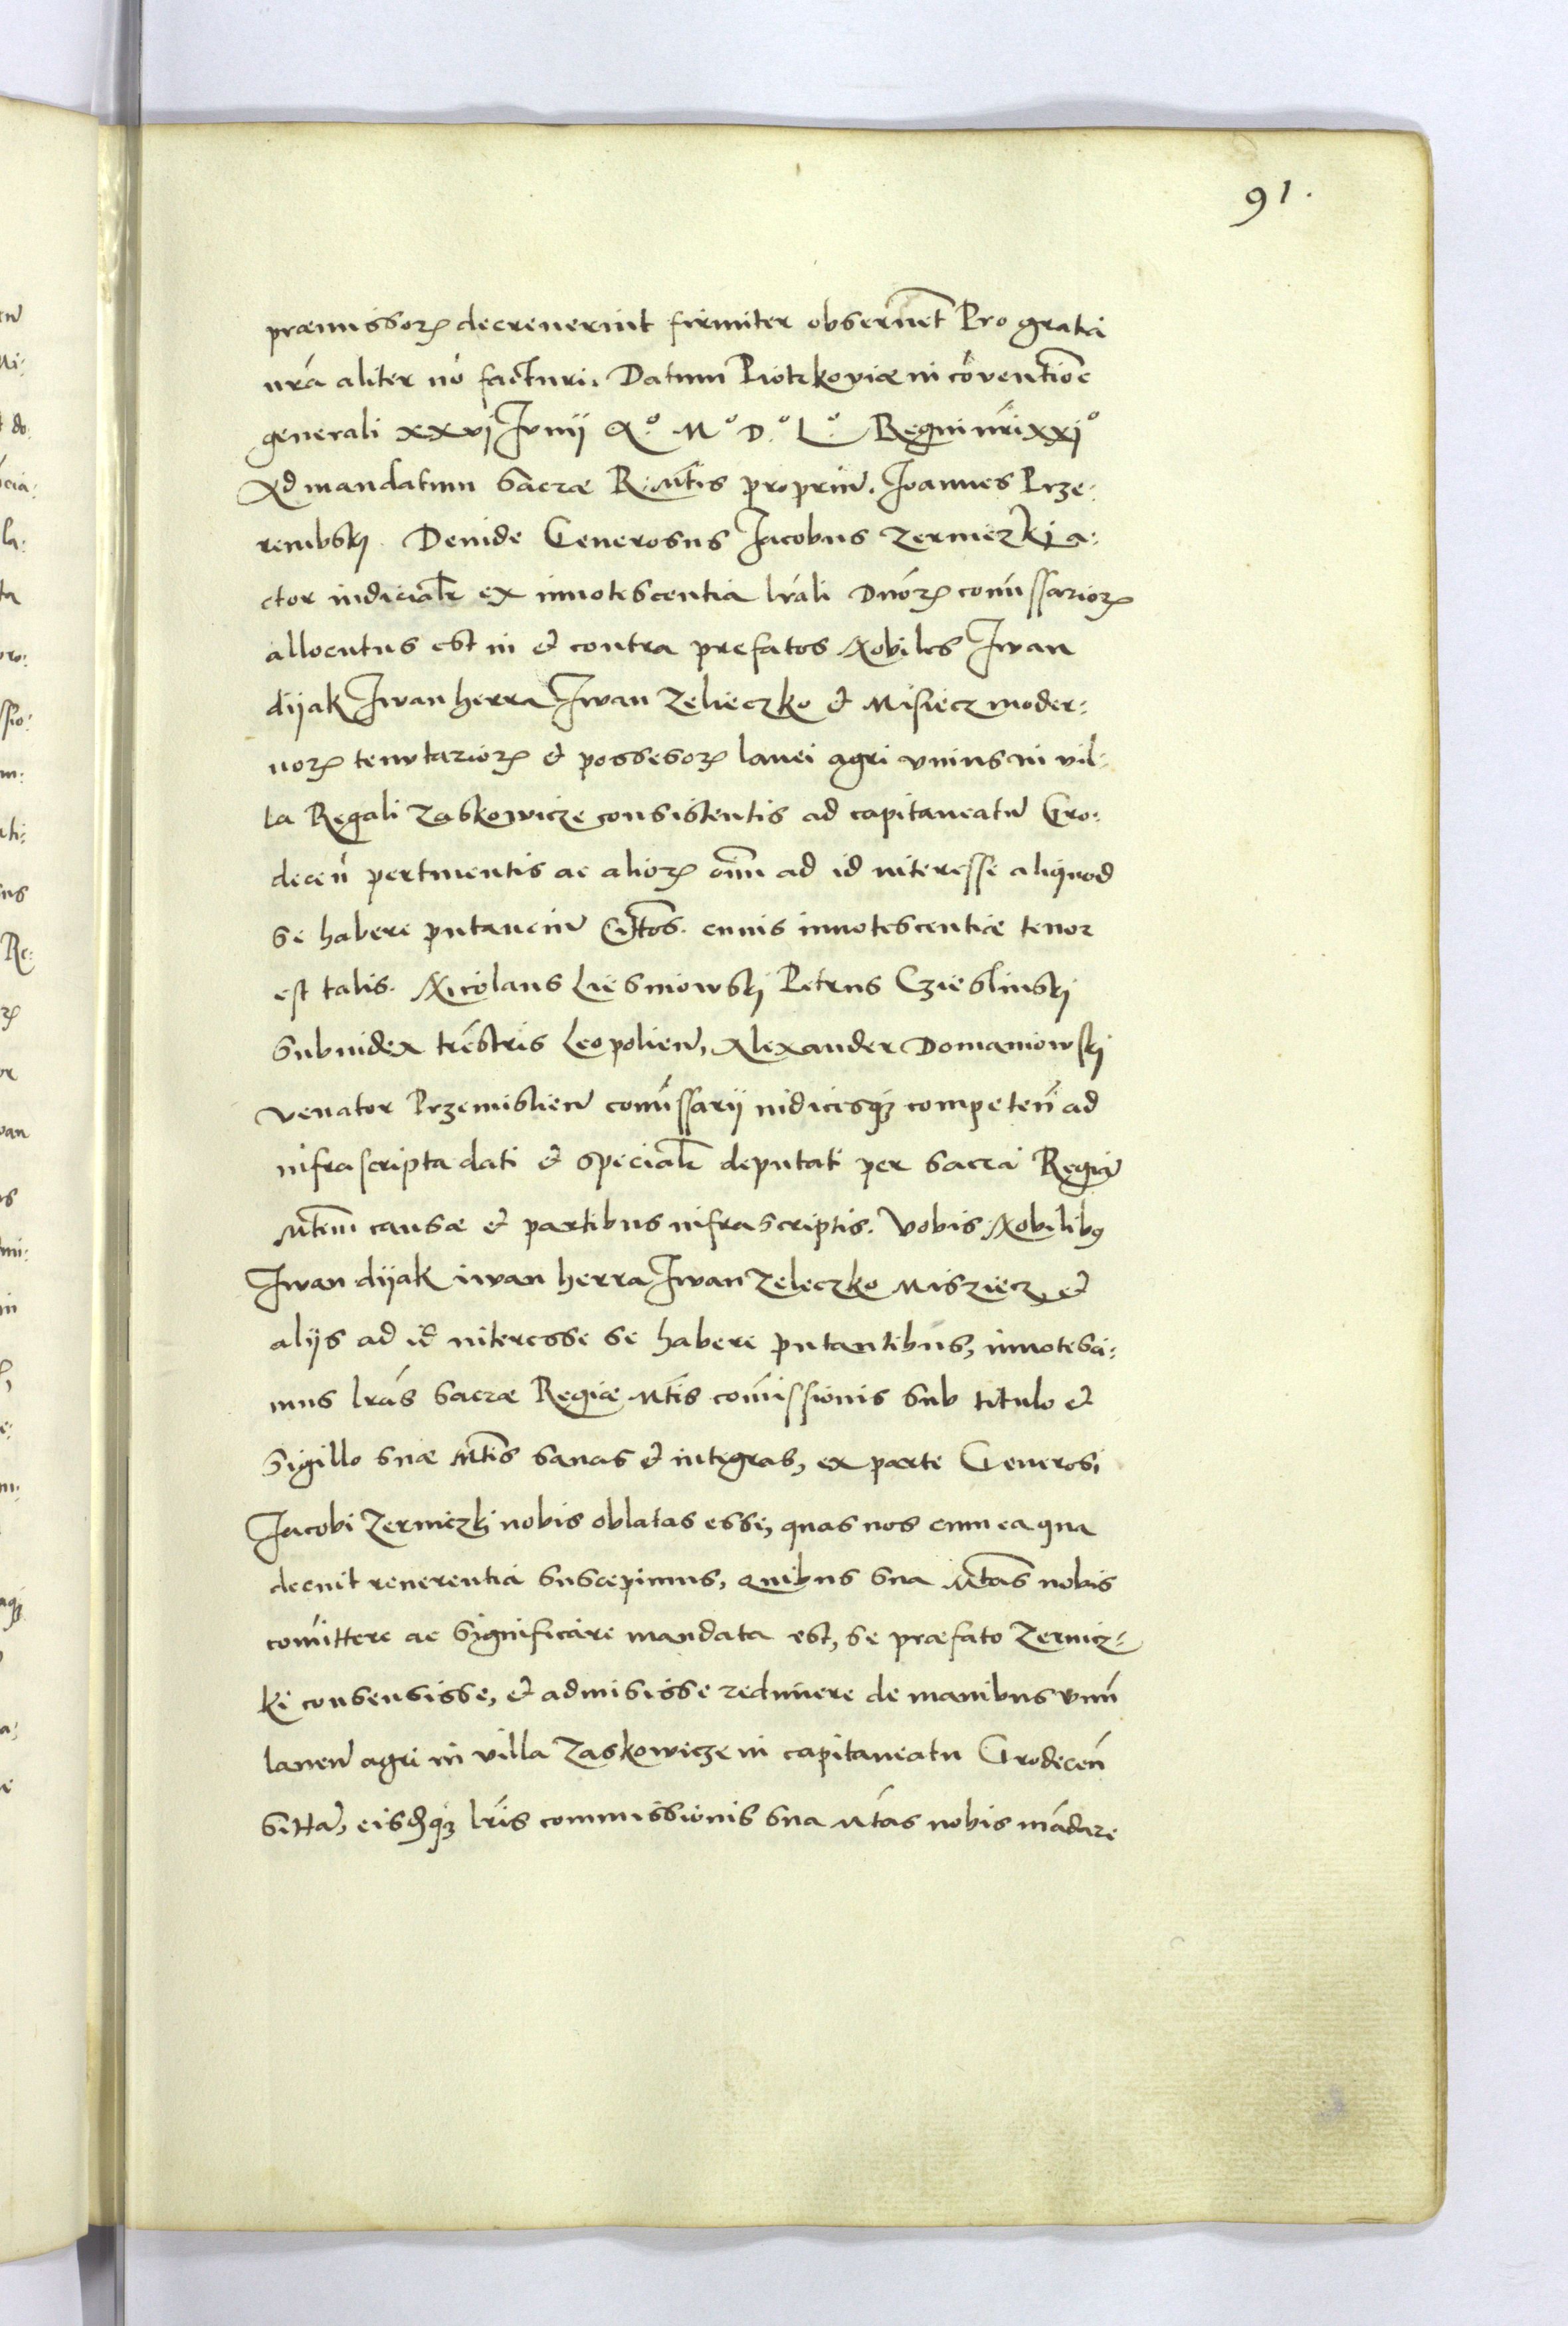 91.
præmissorꝝ decreverint firmiter observēt Pro gratia
nrā aliter nō facturi. Datum Piotrkoviæ in cōventiōe
generali xxvj Junij Aº. Mº D.º L.º Regni nri xxjº
Ad mandatum Sacræ R. Mtis propriū. Joannes Prze:
rembskj. Deinde Generosus Jacobus Zerniczkj a:
ctor iudicialr ex innotescentia lrāli Dnōrꝝ comissariorꝝ
allocutus est in et contra prefatos Nobiles Iwan
dijak Iwan herra Iwan Zelieczko et Misiecz moder:
norꝝ tenutariorꝝ et possesorꝝ lanei agri unius in vil:
la Regali Zaskowicze consistentis ad capitaneatū Gro:
decen̄ pertinentis ac aliorꝝ oīm ad id interesse aliquod
se habere putanciū Citōs. cuius innotescentiæ tenor
est talis. Nicolaus Liesniowskj Petrus Czieslinskj
Subiudex tr̄estris Leopolien̄, Alexander Domaniowskj
Venator Przemislien̄ comissarij iudicesqꝫ competen̄ ad
infrascripta dati et specialr deputati per sacrā Regiā
Mtem causæ et partibus infrascriptis. Vobis Nobilibꝰ
Iwan dijak iwan herra Iwan Zeleczko Misziecz et
alijs ad id interesse se habere putantibus, innotesci:
mus lrās Sacræ Regiæ Mtis comissionis sub titulo et
Sigillo suæ Mtis sanas et integras, ex parte Generosi
Jacobi Zerniczkj nobis oblatas esse, quas nos cum ea qua
decuit reverentia suscepimus, quibus sua Mtas nobis
comittere ac significare mandata est, se præfato Zernicz:
ki consensisse, et admisisse redimere de manibus unū
laneū agri in villa Zaskowicze in capitaneatu Grodecen̄
sittā, eisdqꝫ lris commissionis sua Mtas nobis mādare